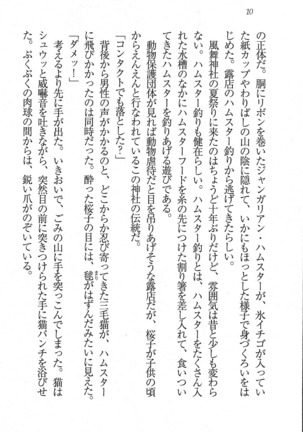 10
の正体だ。胴にリボンを巻いたジャンガリアン・ハムスターが、氷イチゴが入ってい
た紙カップやわりばしの山の陰に隠れて、いかにもほっとした様子で身づくろいをは
じめた。露店のハムスター釣りから逃げてきたらしい。
風舞神社の夏祭りに来たのはちょうど十年ぶりだけど、雰囲気は昔と少しも変わら
ない。ハムスター釣りも健在らしい。ハムスター釣りとは、ハムスターをたくさん入
れた水槽のなかにハムスターフードを糸の先につけた割り箸を差し入れて、食いつい
てきたハムスターを釣りあげる遊びである。
動物保護団体が見れば動物虐待だと目を吊りあげそうな露店だが、桜子が子供の頃
からえんえんと行なわれているこの神社の伝統だ。
「コンタクトでも落とした?」
背後から男性の声がかかるのと、どこからか忍び寄ってきた三毛猫が、ハムスター
に飛びかかったのは同時だった。酔った桜子の目には、毬がはずんだみたいに見えた。
「ダメッー」
考えるより先に手が出た。いきおいで、ごみの山に手を突っこんでしまった。猫は
シュウッと威嚇音を吐きながら、突然目の前に突きつけられた手に猫パンチを浴びせ
る。ぷくぷくの肉球の間からは、鋭い爪がのぞいている。